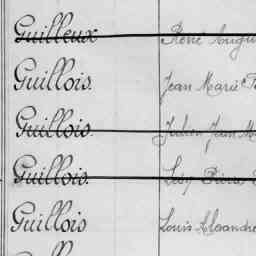 Guilleux René Augu
Guillois. Jean Marie
Guillois. Julien Jean M
Guillois. Pierre
Guillois Louis Alexandre